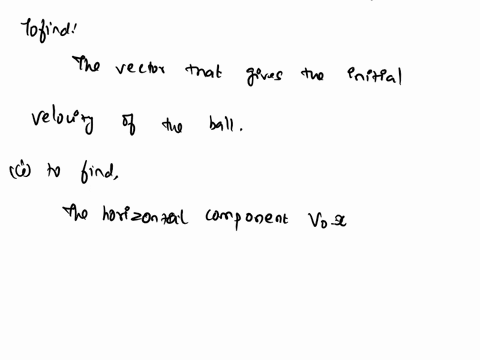 To find:
The vector that gives the initial
velocity of the ball.
(i) to find,
The horizontal component V₀x